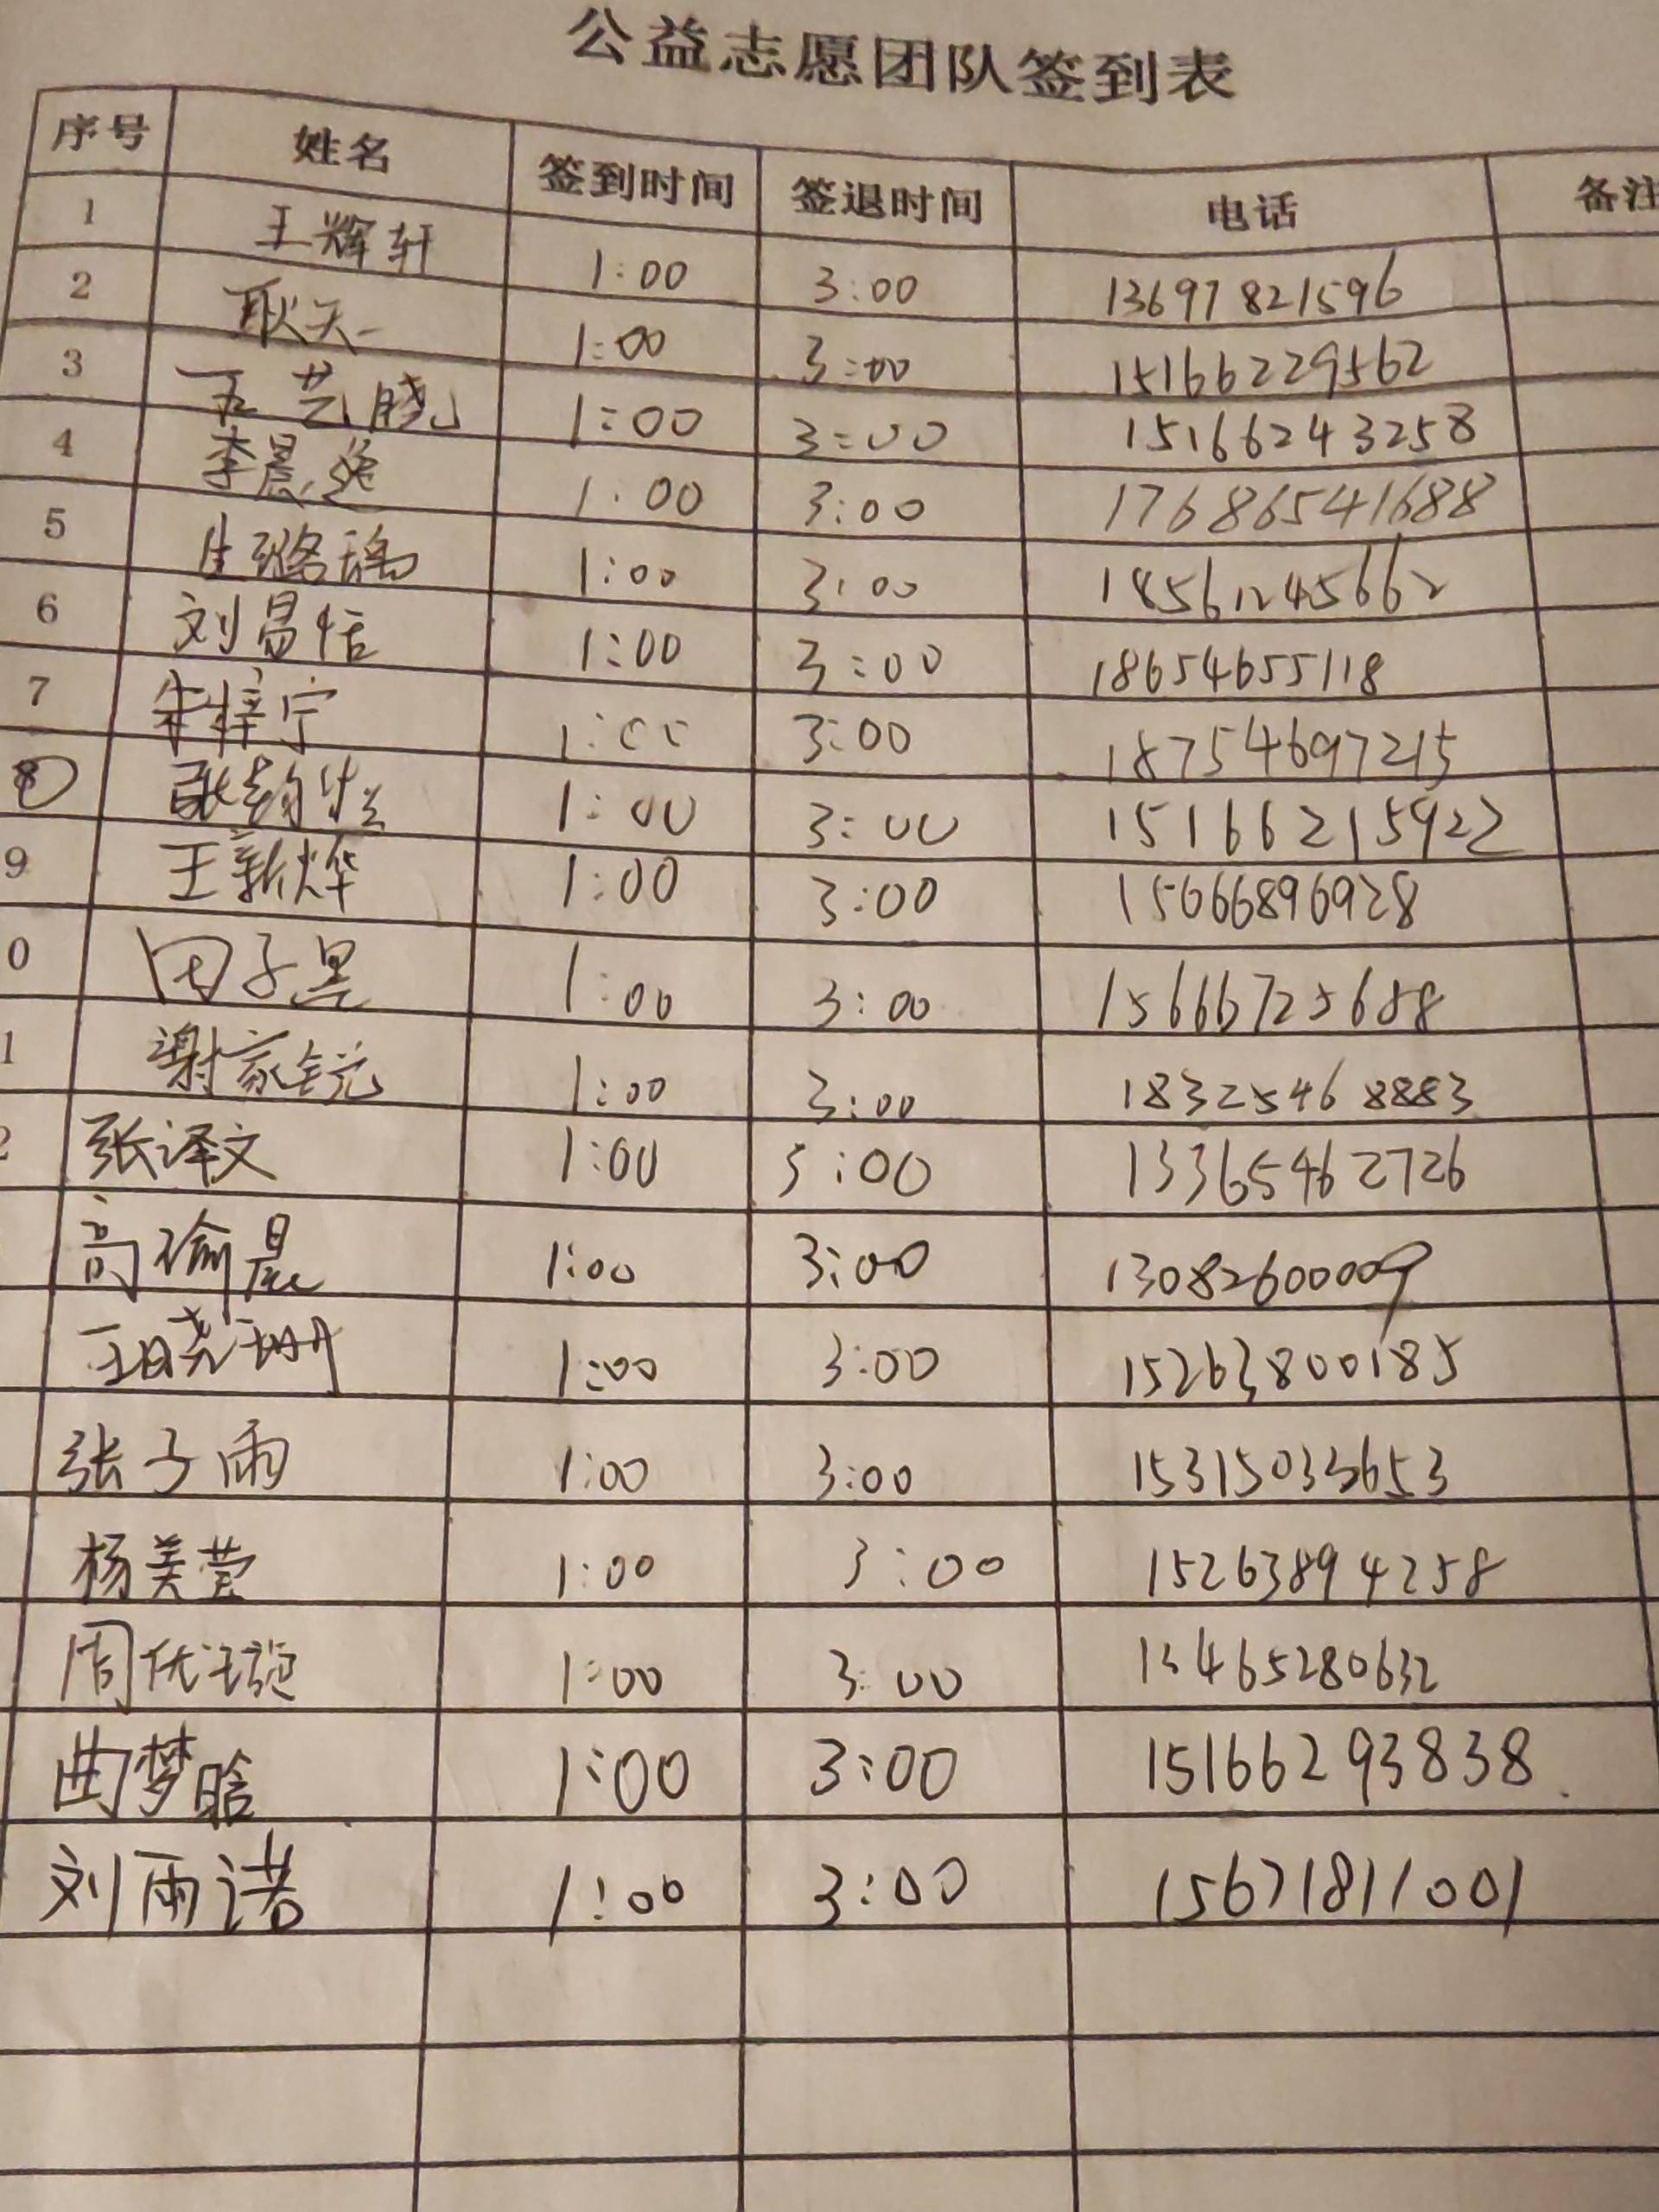 公益志愿团队签到表
序号 姓名 签到时间 签退时间 电话 备注
1 王辉轩 1:00 3:00 13697821596
2 耿天一 1:00 3:00 15166229562
3 王艺晓 1:00 3:00 15166243258
4 李晨逸 1:00 3:00 17686541688
5 生璐瑶 1:00 3:00 18561245662
6 刘昌恬 1:00 3:00 18654655118
7 朱梓宁 1:00 3:00 18754697215
8 1:00 3:00 15166215922
9 王新烨 1:00 3:00 15666896928
0 田子昊 1:00 3:00 15666725688
1 谢家锐 1:00 3:00 18325468883
2 张译文 1:00 3:00 13365462726
高瑜晨 1:00 3:00 13082600009
王晓珊 1:00 3:00 15263800185
张子雨 1:00 3:00 15315033653
杨美莹 1:00 3:00 15263894258
周优璇 1:00 3:00 13465280632
曲梦晗 1:00 3:00 15166293838
刘雨诺 1:00 3:00 15671811001